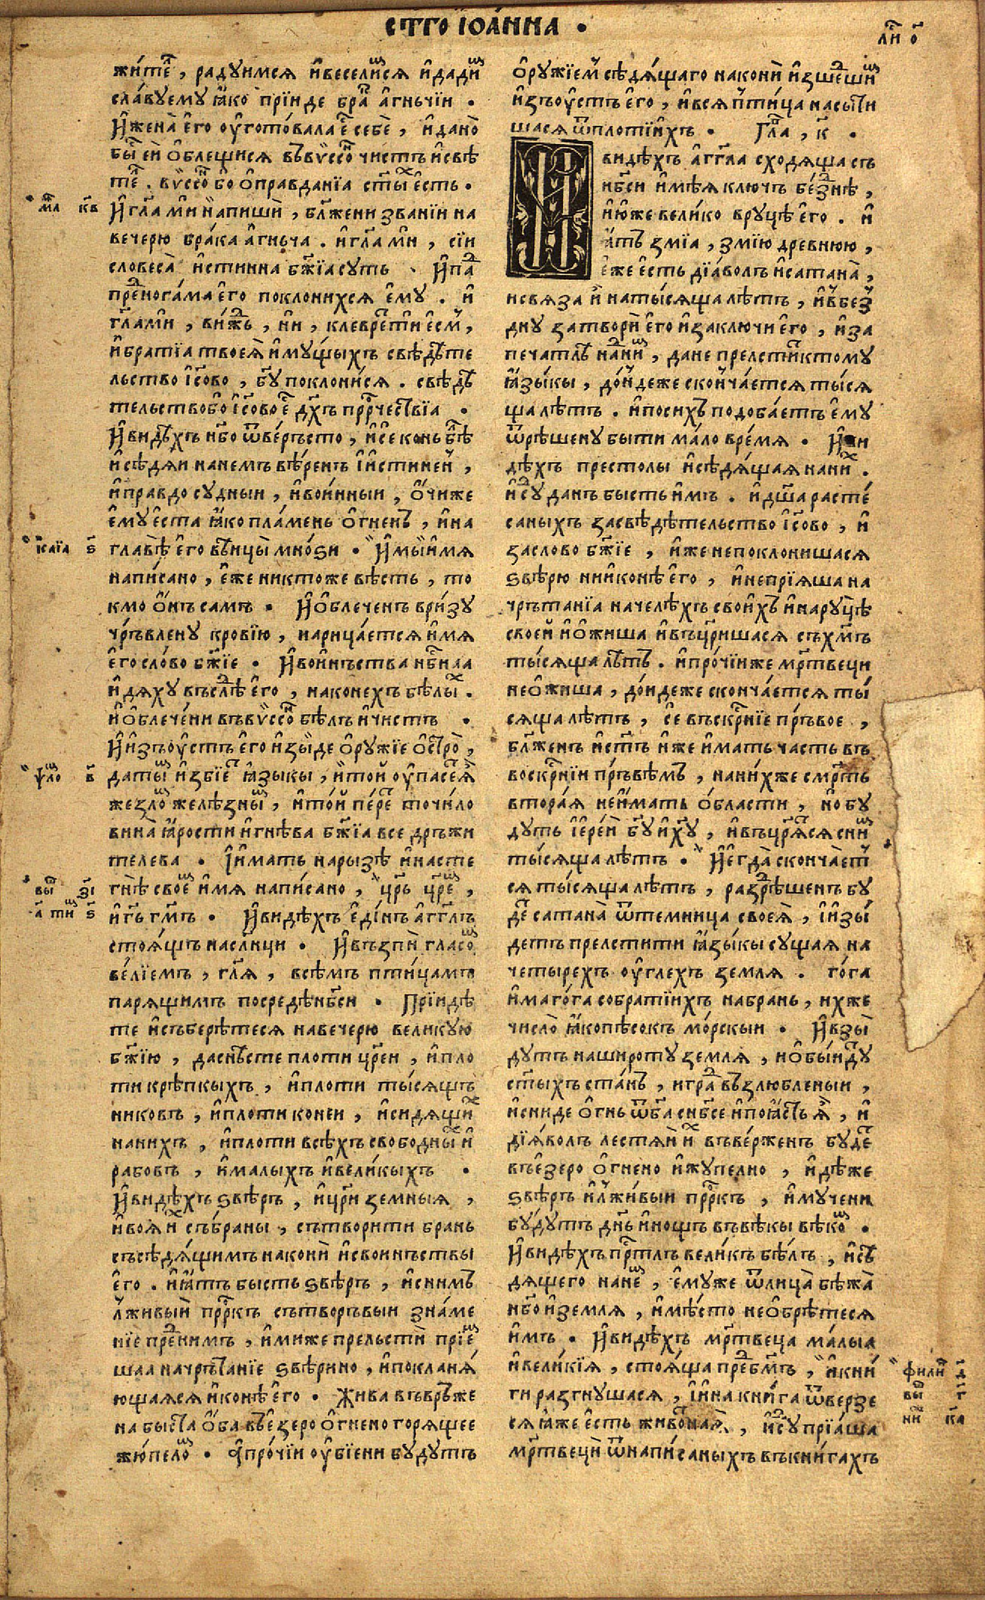 СТ҃ГО ІѠА́ННА ·
ли о҃
жи́те, ра́дуимсѧ и҆веселисѧ и҆дади
сла́вуему ꙗ҆́ко прїи́де бра а҆гньчїи ·
И҆жена̀ е҆го оу҆гото́вала е҆ себѐ, и҆дано̀
бы е҆и ѻ҆блещисѧ въвѵссо чистъ и҆свѣ
те. вѵссо бо ѻ҆правда́нїа ст҃ы е҆сть ·
И҆гл҃а ми напишѝ, бл҃жени зва́нїи на
вечерю бра́ка а҆гньча. и҆гл҃а ми, сїи
словеса̀ и҆стинна бж҃їа суть · И҆па
пренога́ма е҆го поклони́хсѧ е҆му. и҆
гл҃ами, ви́жь, ни, клеврети е҆сми,
и҆братїа твоеѧ̀ и҆му́щыхъ свѣдѣте
льство і҆со҃во, бг҃у поклони́сѧ. свѣдѣ
тельствобо і҆со҃вое д҃хъ пррⷪ҇чествїа ·
И҆видѣхъ нб҃о ѿве́рьсто, и҆се конь бѣ
и҆сѣдѧи нанемъ вѣ́ренъ і҆и҆стинен,
и҆правдо су́дныи, и҆вои́нныи, ѻ҆́чиже
е҆му е҆ста ꙗ҆́ко пла́мень ѻ҆гненъ, и҆на
главѣ̀ е҆го вѣнцы̀ мно́ѕи · И҆мы и҆мѧ
напи́сано, е҆́же никтоже вѣсть, то
кмо ѻ҆́нъ самъ · И҆ѻ҆блеченъ ври́зу
чръ́влену кро́вїю, нарица́етсѧ и҆мѧ
е҆го сло́во бж҃їе · И҆вои́нъства нбⷭ҇наа
и҆дѧху въслѣ е҆го, наконехъ бѣлы.
и҆ѻ҆блече́ни въвѵссо бѣлъ и҆чистъ ·
И҆изъоу҆стъ е҆го и҆зы́де ѻ҆рꙋжїе ѻ҆стро̀,
даты и҆збїе ꙗ҆зыки, и҆той оу҆пасеѧ
жезло желѣзны, и҆то́й пе́ре точи́ло
вина̀ ꙗ҆рости и҆гнѣва бж҃їа все дръ́жи
телева · І҆и҆мать нарызѣ и҆насте
гнѣ̀ свое и҆мѧ написано, цр҃ь цр҃е,
и҆гь гм҃ъ · И҆видѣхъ е҆ди́нъ а҆гг҃лъ
стоѧ́щъ насл҃нци · И҆възпѝ гласо
ве́лїемъ, гл҃ѧ, всѣмъ птицамъ
парѧщимъ посредѣ нбⷭ҇си · Прїидѣ
те и҆събере́тесѧ навечерю великую
бж҃їю, даснѣсте плоти цр҃еи, и҆пло
ти крѣпкыхъ, и҆плоти ты́сѧщъ
никовъ, и҆плоти конеи, и҆сидѧщи
наниxъ, и҆плоти всѣхъ свобо́дны и҆
рабовъ, и҆ма́лыхъ и҆вели́кыхъ ·
И҆видѣхъ ѕвѣрѧ, и҆цр҃и земныѧ,
и҆воѧ̀ и҆ събраны, сътворити брань
съсѣдѧщимъ наконѝ и҆свои́нъствы
е҆го. и҆ꙗ҆тъ бысть ѕвѣрь, и҆снимъ
лжи́выи пррⷪ҇къ сътворь́выи зна́ме
нїе пренимъ, и҆миже прельстѝ прїе
шаа начръта́нїе ѕвѣрино, и҆покланѧ́
ющаѧсѧ и҆ко́не е҆го · Жи́ва въврьже
на быста ѻ҆́ба въе҆зеро ѻ҆гнено горѧщее
жю́пело · а҆про́чїи оу҆бїени бу́дутъ
ѻ҆рꙋжїемъ сѣдѧщаго наконѝ и҆зше́шим
и҆зъоу҆стъ е҆го, и҆всѧ пти́ца насыти
шасѧ ѿпло́тїихъ · Гла, к ·
И҆видѣхъ а҆гг҃ла сходѧща съ
нбⷭ҇си и҆мѣѧ ключъ бе́знѣ,
и҆ю́же велико вруцѣ е҆го. и҆
ꙗ҆тъ змїа, змїю древнюю,
е҆́же е҆сть дїа́волъ и҆сатана̀,
исвѧза и҆ натысѧща лѣтъ, и҆вбез
дну затворѝ е҆го и҆заключи е҆го, и҆за
печатлѣ нани, дане прелстиктому
ꙗ҆зы́кы, до́ндеже сконча́етсѧ ты́сѧ
ща лѣтъ. и҆посихъ подоба́етъ е҆му
ѿрѣшену быти ма́ло вре́мѧ · И҆ви
дѣхъ престолы и҆сѣдѧ́щаѧ нани.
и҆су данъ бысть и҆мъ. и҆дш҃а расте́
саныхъ засвѣдѣтельство і҆со҃во, и҆
засло́во бж҃їе, и҆же непоклони́шасѧ
ѕвѣрю нииконѣ е҆го, и҆неприѧ́ша на
чръта́нїа начелѣхъ своихъ и҆наруцѣ̀
свое́й и҆ѻ҆жиша и҆въцр҃ишасѧ съхмⷭ҇ъ
ты́сѧща лѣтъ. и҆про́чїиже мр҃твеци
неѻ҆жиша, до́ндеже сконча́етсѧ ты́
сѧща лѣтъ, се въскрⷭ҇нїе пръ́вое,
бл҃женъ и҆стъ и҆же и҆мать часть въ
воскрⷭ҇нїи пръ́вѣмъ, нани́хже смр҃ть
втора́ѧ неи҆мать ѻ҆бласти, но бу
дуть і҆ере́и бг҃у и҆х҃у, и҆въцр҃ѧсѧ сни
ты́сѧща лѣтъ · И҆е҆гда̀ скончает
сѧ ты́сѧща лѣтъ, разрѣшенъ бу
де сатана̀ ѿтемница своеѧ̀, і҆и҆зы́
детъ прелстити ꙗ҆зы́кы сущаѧ на
четырехъ оу҆глехъ землѧ. го́га
и҆маго́га собратїихъ набрань, ихже
число̀ ꙗ҆копѣсокъ мо́рскыи · И҆взы̀
дутъ нашироту землѧ, иѻ҆бы́иду
стⷭ҇ыхъ ста́нъ, игра възлюбленыи,
и҆сниде ѻ҆гнь ѿба снбⷭ҇се и҆поꙗ҆сть ѧ҆̀, и҆
дїѧволъ лестѧ́й и҆ въве́рженъ буде
въе҆зеро ѻ҆гнено и҆жупелно, и҆дѣже
ѕвѣрь и҆лжи́выи пррⷪ҇къ, и҆мучени
бу́дутъ дн҃ь и҆нощъ въвѣкы вѣко ·
И҆видѣхъ пртⷭ҇лъ великъ бѣлъ, и҆сѣ
дѧщего нане, е҆му́же ѿлица̀ бѣжа̀
нб҃о и҆землѧ, и҆мѣ́сто неѻ҆брѣтесѧ
и҆мъ · И҆видѣхъ мр҃твеца ма́лыа
и҆вели́кїѧ, стоѧща пребмъ, и҆кни
ги разгнушасѧ, і҆и҆на кни́га ѿверзе
сѧ ꙗ҆́же е҆сть живо́тнаѧ, и҆су прїа́ша
мр҃твецѝ ѿнапи́саныхъ въкни́гахъ
ма кв
і҆саїа ѕ҃
ѱло в҃
вы зі
а҃ ти ѕ҃
филип д҃
вы г҃
ни ка